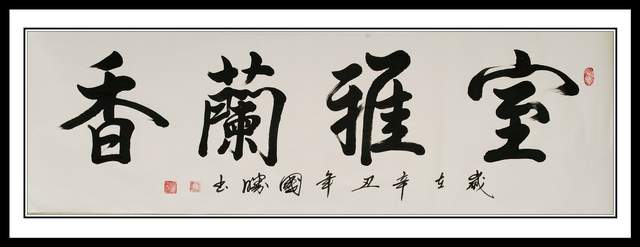 室雅蘭香
歲在辛丑年國勝书